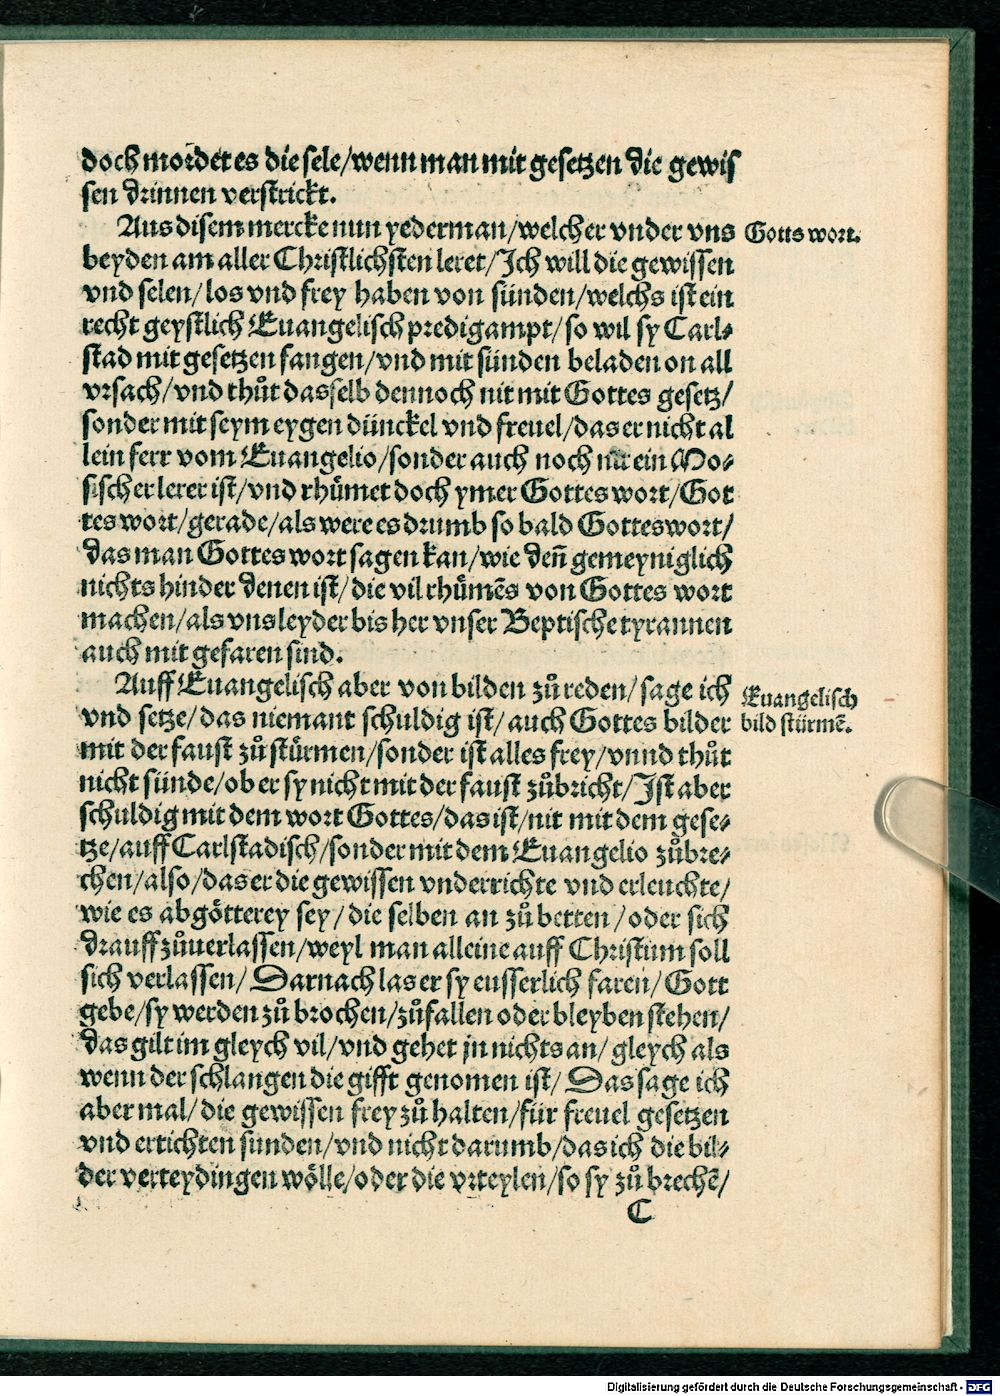 doch mordet es die sele/wenn man mit gesetzen die gewis
sen drinnen verstrickt.
Aus disem mercke nun yederman/welcher vnder vns
Gotts wort.
beyden am aller Christlichsten leret/Ich will die gewissen
vnd selen/los vnd frey haben von sünden/welchs ist ein
recht geystlich Euangelisch predigampt/so wil sy Carl⸗
stad mit gesetzen fangen/vnd mit sünden beladen on all
vrsach/vnd thůt dasselb dennoch nit mit Gottes gesetz/
sonder mit seym eygen dünckel vnd freuel/das er nicht al
lein ferr vom Euangelio/sonder auch noch nit ein Mo⸗
sischer lerer ist/vnd rhümet doch ymer Gottes wort/Got
tes wort/gerade/als were es drumb so bald Gottes wort/
das man Gottes wort sagen kan/wie deñ gemeyniglich
nichts hinder denen ist/die vil rhümẽs von Gottes wort
machen/als vns leyder bis her vnser Beptische tyrannen
auch mit gefaren sind.
Auff Euangelisch aber von bilden zů reden/sage ich
Euangelisch
vnd setze/das niemant schuldig ist/auch Gottes bilder
bild stürmẽ.
mit der faust zů stürmen/sonder ist alles frey/vnnd thůt
nicht sünde/ob er sy nicht mit der faust zůbricht/Ist aber
schuldig mit dem wort Gottes/das ist/nit mit dem gese⸗
tze/auff Carlstadisch/sonder mit dem Euangelio zůbre⸗
chen/also/das er die gewissen vnderrichte vnd erleuchte/
wie es abgötterey sey/die selben an zů betten/oder sich
drauff zůuerlassen/weyl man alleine auff Christum soll
sich verlassen/Darnach las er sy eusserlich faren/Gott
gebe/sy werden zů brochen/zůfallen oder bleyben stehen/
das gilt im gleych vil/vnd gehet jn nichts an/gleych als
wenn der schlangen die gifft genomen ist/Das sage ich
aber mal/die gewissen frey zů halten/für freuel gesetzen
vnd ertichten sunden/vnd nicht darumb/das ich die bil⸗
der verteydingen wölle/oder die vrteylen/so sy zů brechẽ/
C
Digitalisierung gefördert durch die Deutsche Forschungsgemeinschaft - DFG